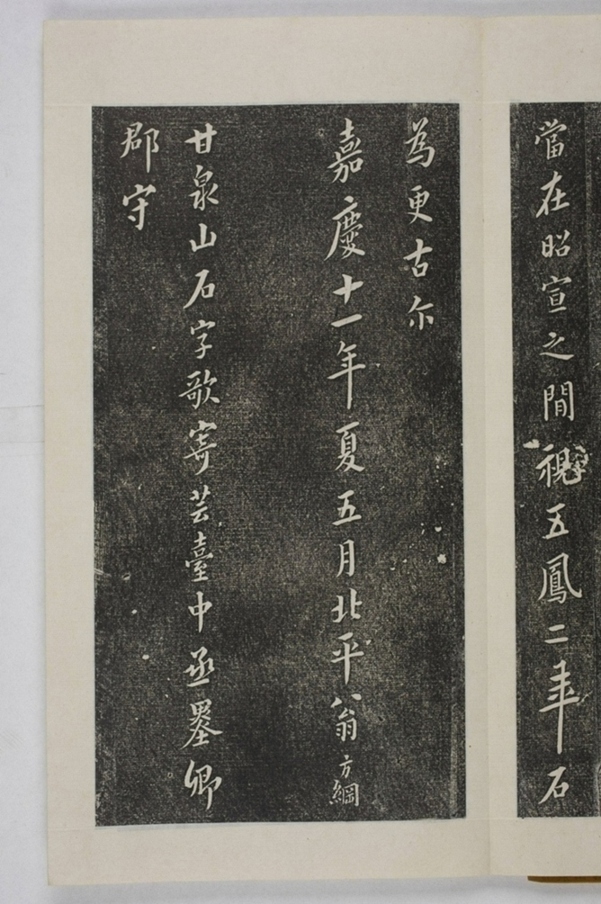 當在昭宣之間視五鳳二年石
為更古尔
嘉慶十一年夏五月北平翁方綱
甘泉山石字歌寄芸臺中丞墨卿
郡守